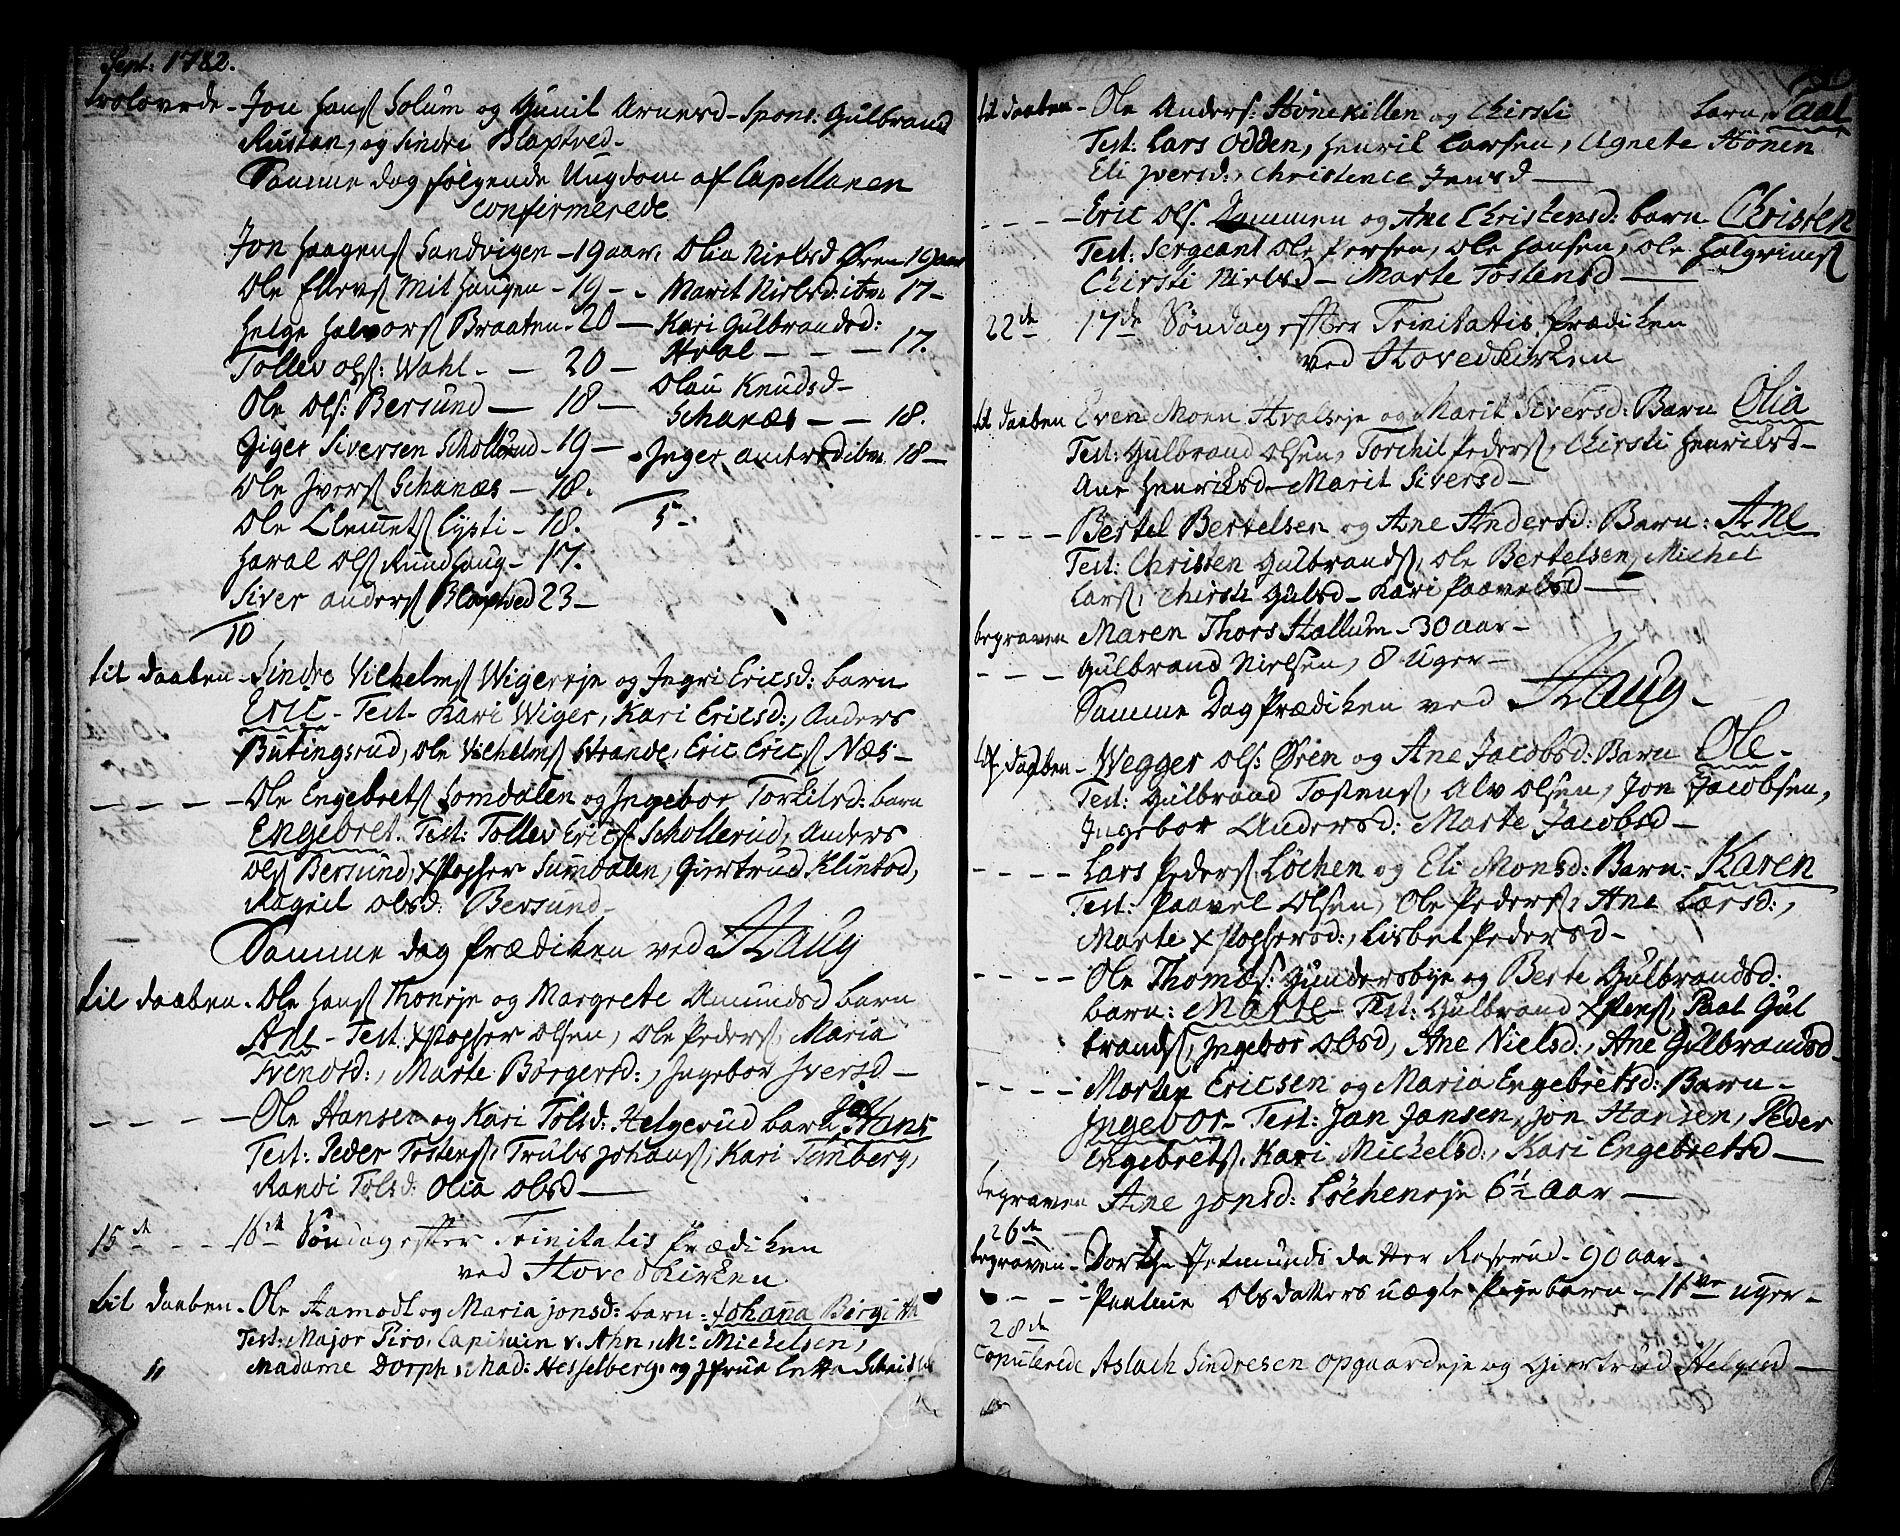 Sept: 1782.
trolovede - Jon Hans. Solum og Gunil Arnesd - Spons: Gulbrand
Rustan, og Sindre Blaptved -
Samme dag følgende Ungdom af Capellanen
confirmerede
Jon Haagens. Sandvigen - 19 aar, Olia Nielsd Øren 19 aar
Ole Ellevs. Mithaugen - 19 - - Marit Nielsd: ibm 17 -
Helge Halvors. Braaten - 20 - Kari Gulbrandsd:
Hval - - - 17.
Tollev Ols: Wahl - - 20 -
Olau Knudsd -
Ole Ols: Bersund - 18 -
Schanæs - - 18.
Giger Siversen Schollerud - 19 -
Inger Anders ibm 18 -
Ole Ivers. Schanæs - 18.
5 -
Ole Clemets. Eysti - 18.
Haral Ols. Rundhaug - 17.
Siver Anders. Blaptved 23 -
10
til daaben - Sindre Vilhelms. Wigereje og Ingri Ericsd: barn
Eric - Test - Kari Wiger, Kari Ericsd:, Anders
Butingsrud, Ole Vilhelms. Strande, Eric Erics. Næs -
- - - - Ole Engebrets. Somdalen og Ingebor Torkilsd: barn
Engebret. Test: Tollev Erics. Schollerud, Anders
Ols. Bersund, Xstopher Sumdalen, Giertrud Klinkod,
Ragnil Olsd: Bersund -
Samme dag Prædiken ved Haug
til daaben - Ole Hans. Thoneje og Margrete Amundsd barn
Ane - Test: Xstopher Olsen, Ole Peders, Maria
Svendsd:, Marte Børgersd:, Ingebor Iversd -
- - - - Ole Hansen og Kari Tolsd: Helgerud barn Hans
Test: Peder Tostens., Truls Johans., Kari Timberg,
Randi Tolsd: Olia Olsd -
15de - - 16de Søndag efter Trinitatis Prædiken
ved Hovedkirken
til daaben - Ole Aamodt og Maria Jonsd: barn: Johana Birgith
Test: Major Piro, Capitain v. Ahn, Mr Michelsen,
Madame Dorph, Mad: Hesselberg, og Jfrue
til daaben - Ole Anders: Hønekillen og Chirsti barn, Paal
Test: Lars Odden, Henric Larsen, Agnete Hønen
Eli Iversd:, Christence Jensd -
- - - - Eric Ols. Dammen og Ane Christensd: barn Christen
Test: Sergeant Ole Persen, Ole Hansen, Ole Halgrims.
Chirsti Nielsd - Marte Tostensd -
22de 17de Søndag efter Trinitatis Prædiken
ved Hovedkirken
til daaben Even Moen Hvalseje og Marit Siversd: Barn Olia
Test: Gulbrand Olsen, Torchil Peders., Chirsti Henricsd -
Ane Henricsd - Marit Siversd -
- - - - Bertel Bertelsen og Ane Andersd: Barn: Ane
Test: Christen Gulbrands., Ole Bertelsen, Michel
Lars., Chirsti Gulsd - Kari Paavelsd -
begraven Maren Thors Hallum - 30 aar -
- - - Gulbrand Nielsen, 8 Uger -
Samme Dag Prædiken ved Haug -
til daaben - Wegger Ols: Øren og Ane Jacobsd: Barn Ole -
Test: Gulbrand Tostens., Alv Olsen, Jon Jacobsen,
Ingebor Andersd: Marte Jacobsd -
- - - - Lars Peders. Løchen og Eli Monsd: Barn: Karen
Test: Paavel Olsen, Ole Peders., Ane Larsd:,
Marte Xstophersd:, Lisbet Pedersd -
- - - - Ole Thomæs: Gundersbye og Berte Gulbrandsd:
barn: Marte - Test: Gulbrand Xstens., Paal Gul
brands., Ingebor Olsd, Ane Nielsd:, Ane Gulbrandsd -
- - - - Morten Ericsen og Maria Engebretsd: Barn -
Ingebor - Test: Jan Jansen, Jon Hansen, Peder
Engebrets. Kari Michelsd:, Kari Engebretsd -
begraven Ane Jonsd: Løcheneje 6½ Aar -
26de
begraven - Dorthe Jetmunds datter Roserud - 90 aar -
- - - Pauline Olsdatters uægte Pigebarn - 11 uger -
28de
Copulerede Aslach Sindresen Opgaardeje og Giertrud Helgesd -